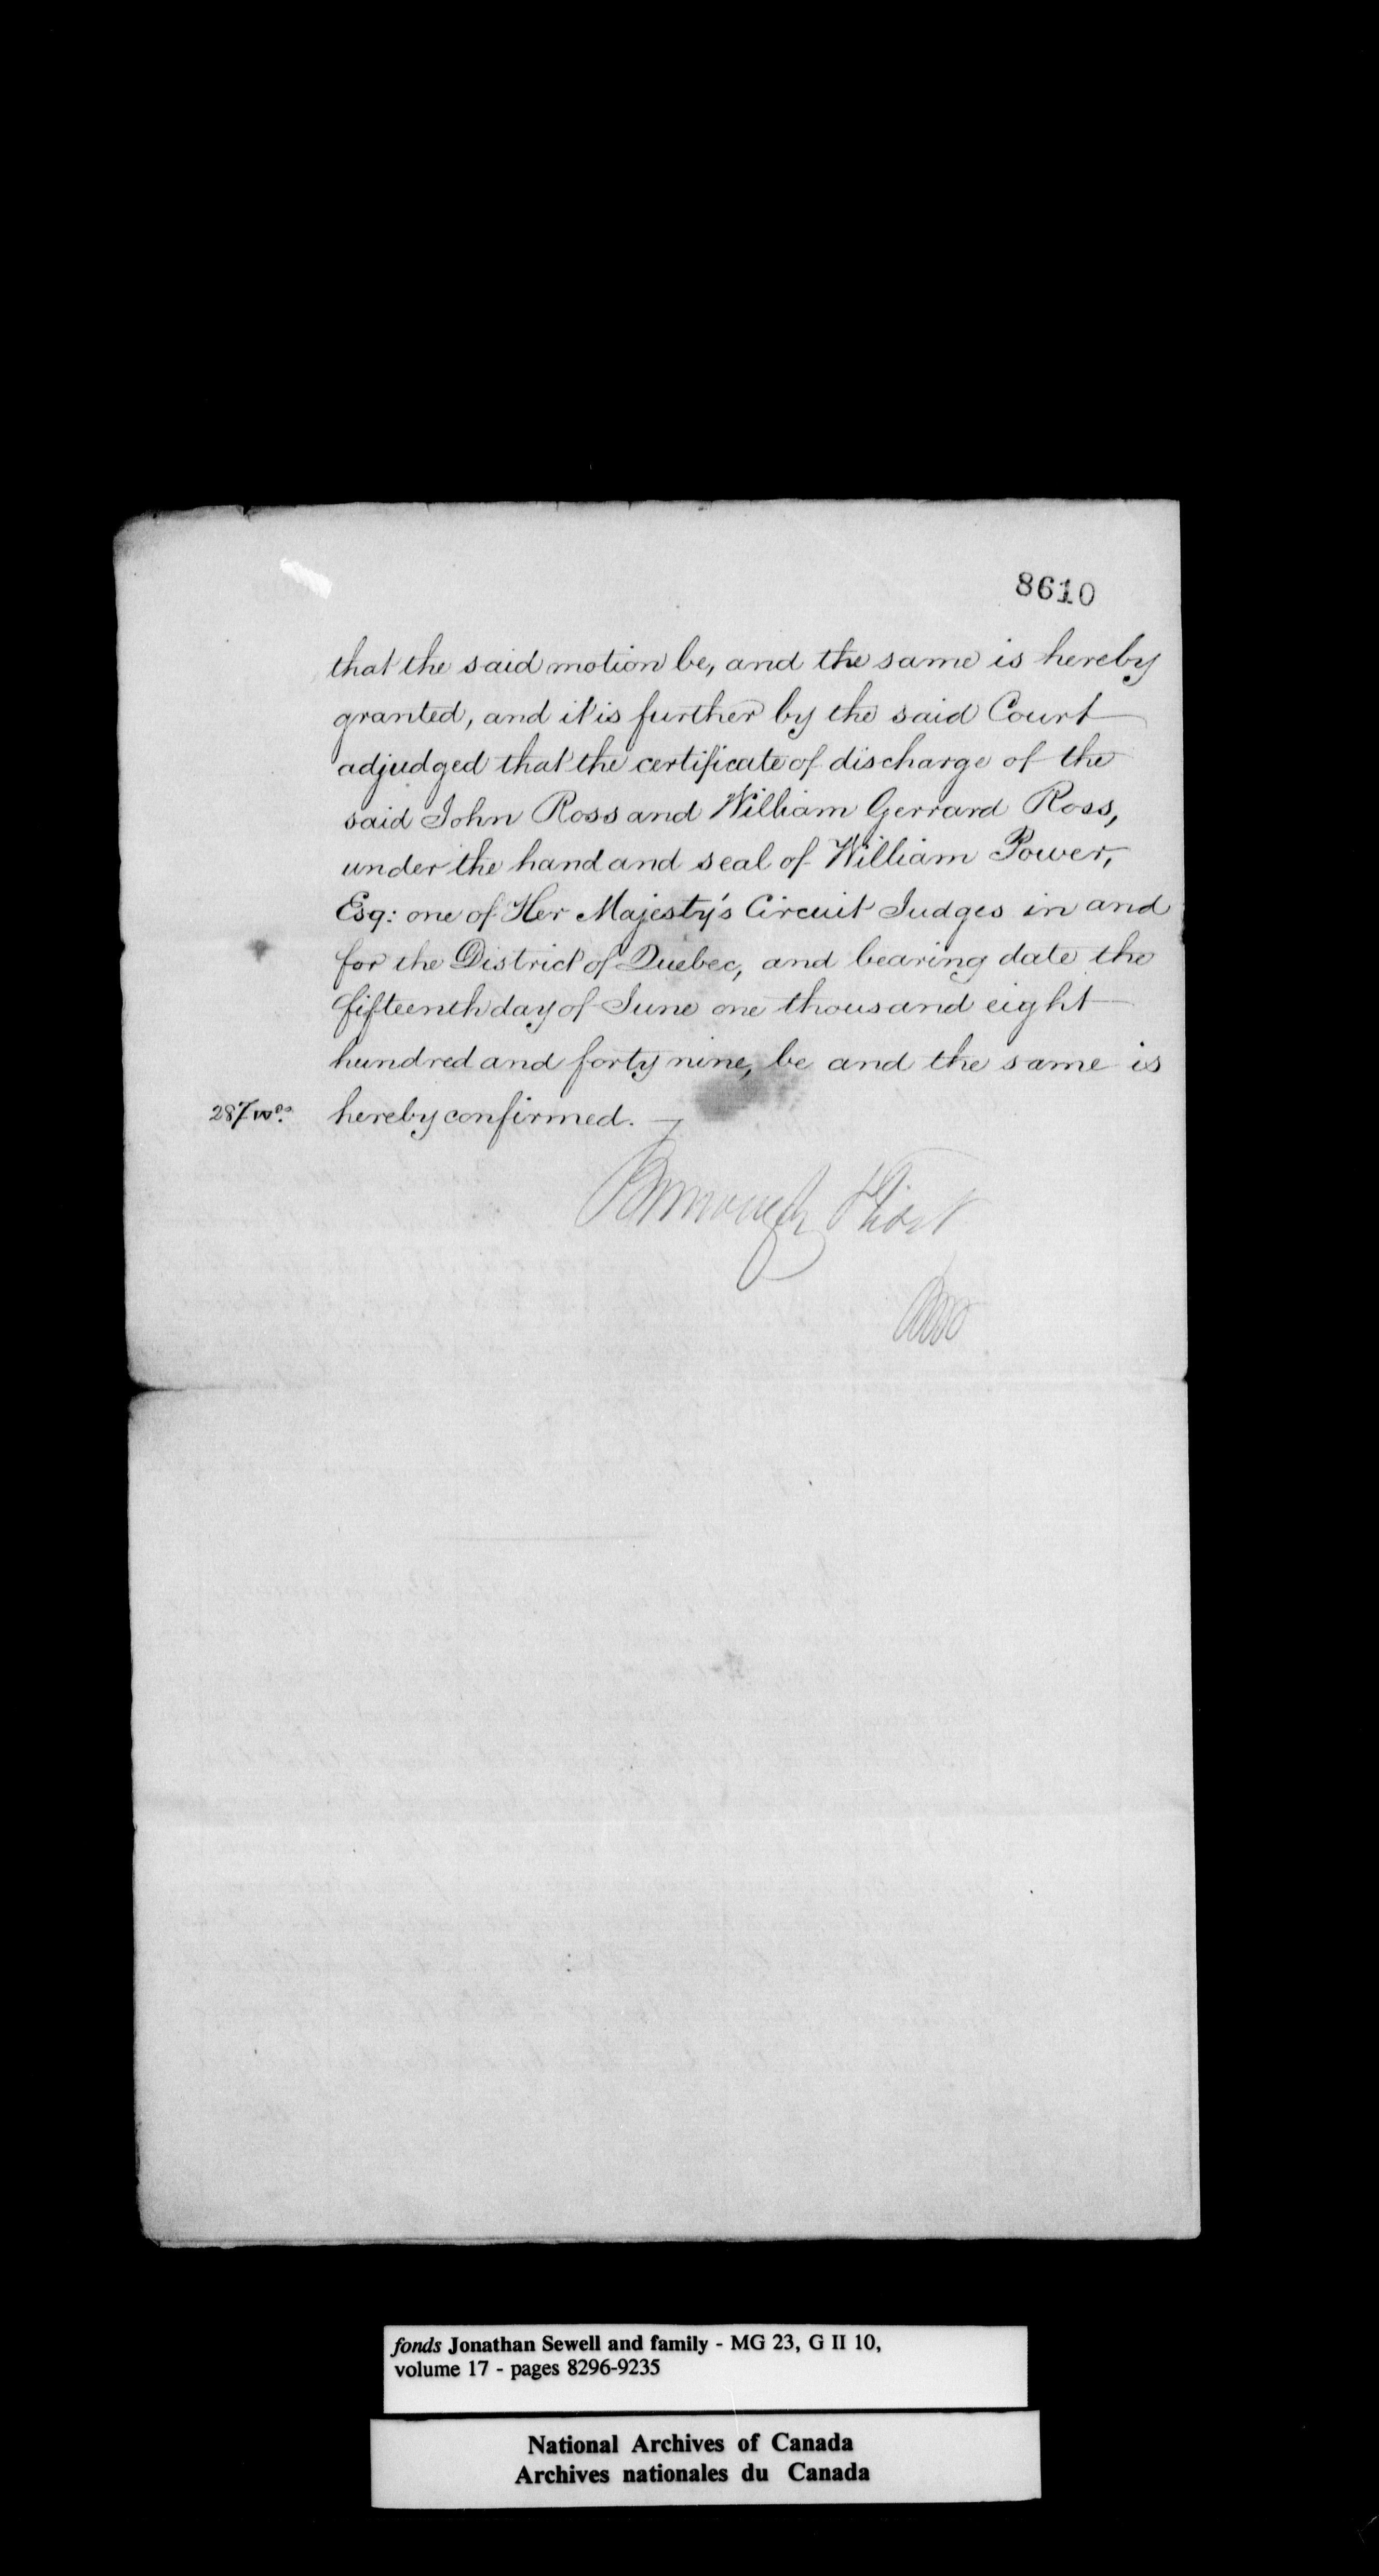 8610
that the said motion be, and the same is hereby
granted, and it is further by the said Court
adjudged that the certificate of discharge of the
said John Ross and William Gerrard Ross,
under the hand and seal of William Power,
Esq: one of Her Majesty's Circuit Judges in and
for the District of Quebec, and bearing date the
fifteenth day of June one thousand eight
hundred and forty nine, be and the same is
287 wds. hereby confirmed.
fonds Jonathan Sewell and family - MG 23, G II 10,
volume 17 - pages 8296-9235
National Archives of Canada
Archives nationales du Canada